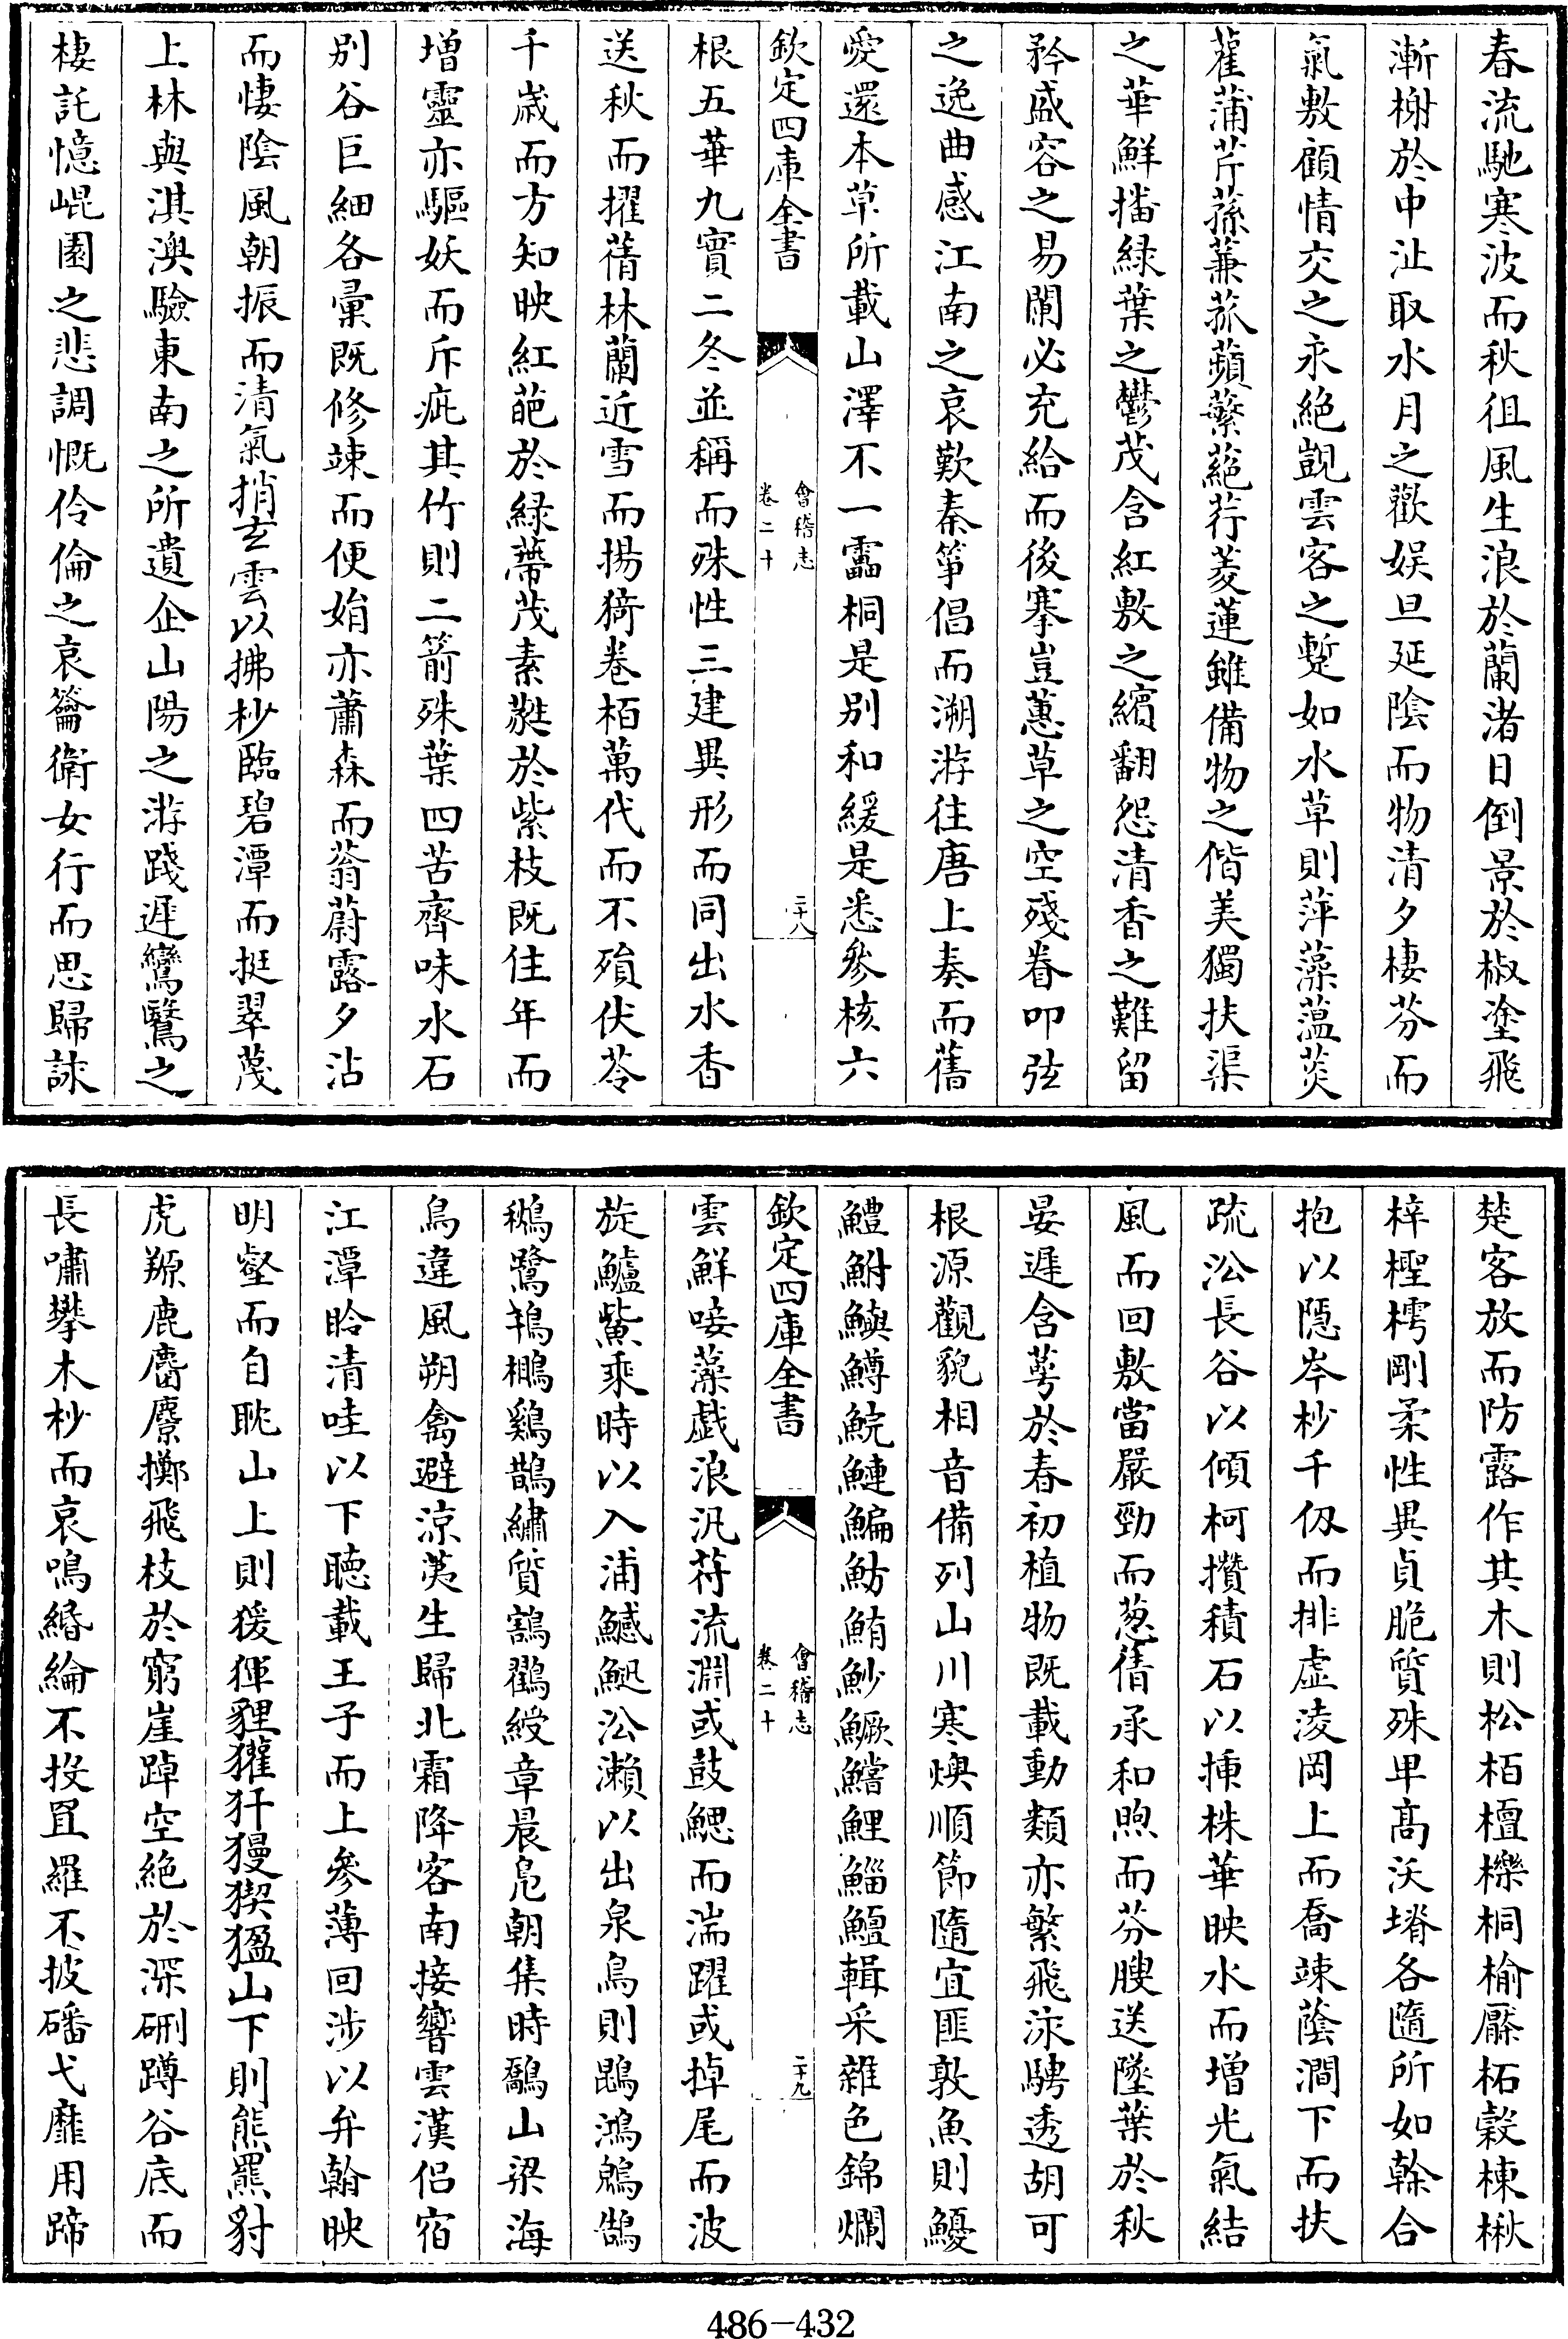 春流馳寒波而秋徂風生浪於蘭渚日倒景於椒塗飛
漸榭於中沚取水月之歡娱旦延陰而物清夕棲芬而
氣敷顧情交之永絶覬雲客之蹔如水草則萍藻蕰菼
雚蒲芹蓀蒹菰蘋蘩蕝荇菱蓮雖備物之偕美獨扶渠
之華鮮播緑葉之鬱茂含紅敷之繽翻怨清香之難留
矜盛容之易闌必充給而後搴豈蕙草之空殘眷叩弦
之逸曲感江南之哀歎秦箏倡而溯游往唐上奏而舊
愛還本草所載山澤不一靁桐是别和緩是悉參核六
欽定四庫全書
會稽志
卷二十
二十八
根五華九實二冬並稱而殊性三建異形而同出水香
送秋而擢蒨林蘭近雪而揚猗卷栢萬代而不殞伏苓
千嵗而方知映紅葩於緑蔕茂素蕤於紫枝既住年而
增靈亦驅妖而斥疵其竹則二箭殊葉四苦齊味水石
别谷巨細各彚既修竦而便娟亦蕭森而蓊蔚露夕沾
而悽陰風朝振而清氣捎玄雲以拂杪臨碧潭而挺翠蔑
上林與淇澳驗東南之所遺企山陽之游踐遲鸞鷖之
棲託憶崐園之悲調慨伶倫之哀籥衛女行而思歸詠
楚客放而防露作其木則松栢檀櫟桐榆檿柘榖棟楸
梓檉樗剛柔性異貞脆質殊卑髙沃塉各隨所如榦合
抱以隱岑杪千仭而排虚凌岡上而喬竦蔭澗下而扶
疏㳂長谷以傾柯攢積石以揷株華映水而増光氣結
風而回敷當嚴勁而葱倩承和煦而芬腴送墜葉於秋
晏遲含蕚於春初植物既載動類亦繁飛泳騁透胡可
根源觀貌相音備列山川寒燠順節隨宜匪敦魚則鰋
鱧鮒鱮鱒鯇鰱鯿魴鮪魦鱖鱨鯉鯔鱣輯采雜色錦爛
欽定四庫全書
會稽志
卷二十
二十九
雲鮮唼藻戯浪汎苻流淵或鼓鰓而湍躍或掉尾而波
旋鱸鮆乘時以入浦鱤𩶱㳂瀨以出泉鳥則鵾鴻鶂鵠
鶖鷺鴇䴎鷄鵲繡質鶷鸐綬章晨鳬朝集時鷮山梁海
鳥違風朔禽避涼荑生歸北霜降客南接響雲漢侣宿
江潭聆清哇以下聽載王子而上參薄回涉以弁翰映
明壑而自耽山上則猨㹯貍獾犴獌猰㺄山下則熊羆豺
虎羱鹿麕麖擲飛枝於窮崖踔空絶於深硎蹲谷底而
長嘯攀木杪而哀鳴緡綸不投罝羅不披磻弋靡用蹄
486-432